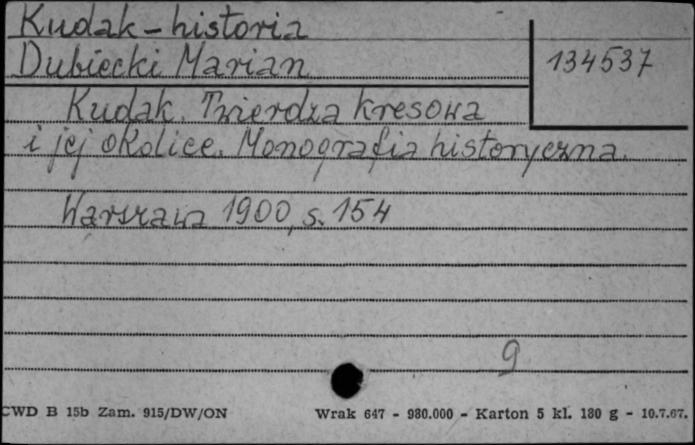 Kudak - historia
Dubiecki Marian
134537
Kudak. Twierdza kresowa
i jej okolice. Monografia historyczna.
Warszawa 1900, s. 154
9
CWD B 15b Zam. 915/DW/ON Wrak 647 - 980.000 - Karton 5 kl. 180 g - 10.7.67.